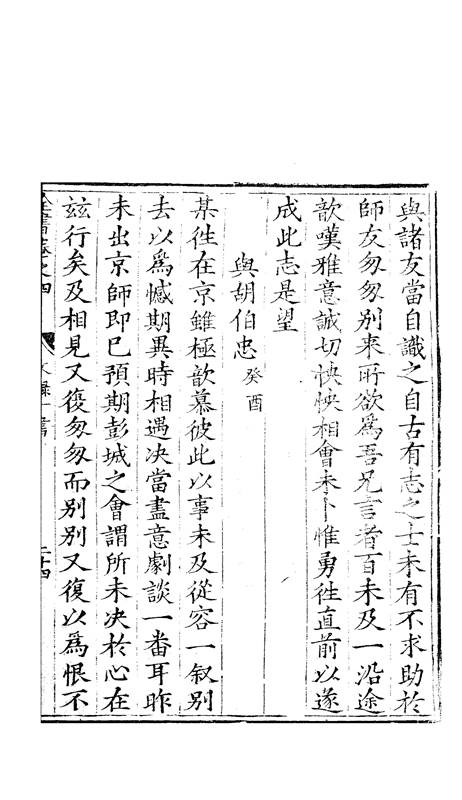 與諸友當自識之自古有志之士未有不求助於
師友匆匆別來所欲為吾兄言者百未及一沿途
歆嘆雅意誠切怏怏相會未卜惟勇徃直前以遂
成此志是望
與胡伯忠癸酉
某徃在京雖極歆慕彼此以事未及從容一叙別
去以為憾期異時相遇決當盡意劇談一番耳昨
未出京師即已預期彭城之會謂所未決於心在
玆行矣及相見又復匆匆而別別又復以為恨不
全書卷之四 文錄一書 二十四